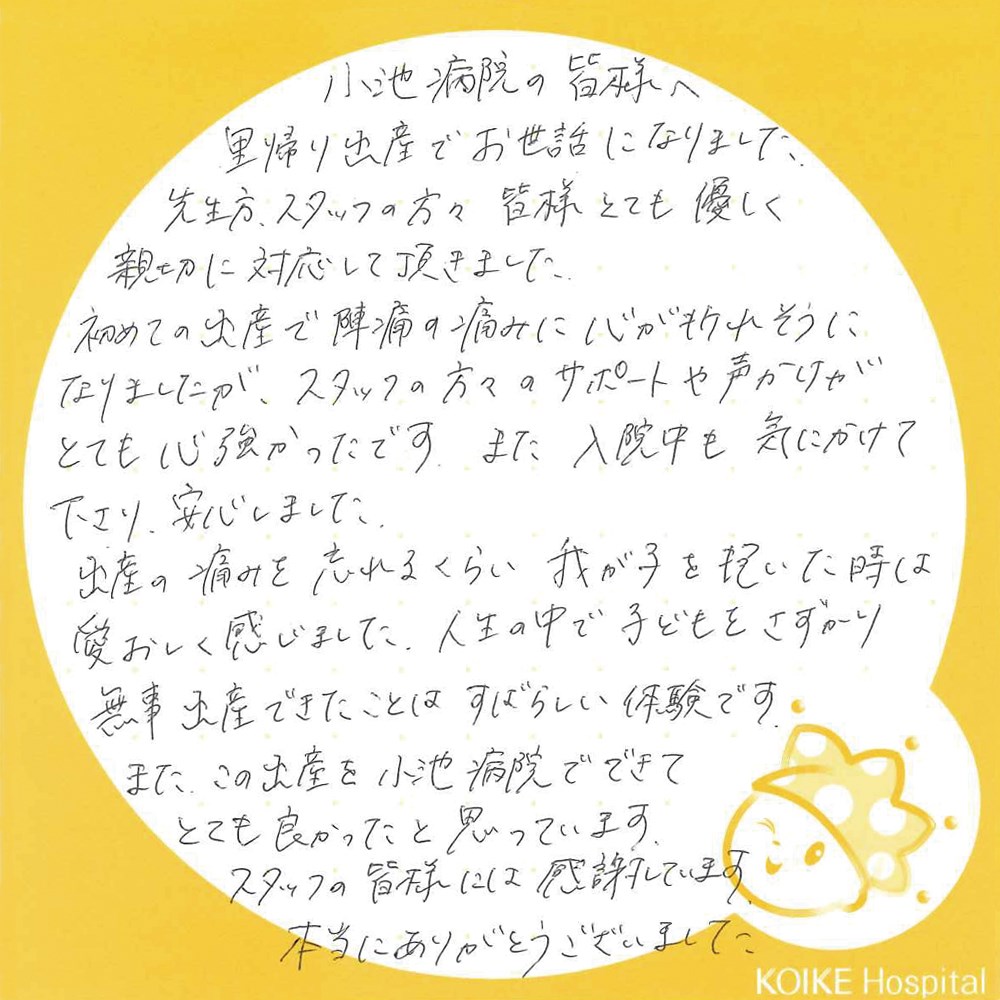 小池病院の皆様へ
里帰り出産でお世話になりました.
先生方、スタッフの方々 皆様とても優しく
親切に対応して頂きました.
初めての出産で陣痛の痛みに心が折れそうに
なりましたが、スタッフの方々のサポートや声かけが
とても心強かったです. また 入院中も 気にかけて
下さり、安心しました.
出産の痛みを 忘れるくらい 我が子を抱いた時は
愛おしく感じました. 人生の中で子どもをさずかり
無事 出産できたことは すばらしい体験です.
また、この出産を 小池病院でできて
とても良かったと思っています.
スタッフの皆様には感謝しています.
本当にありがとうございました
KOIKE Hospital